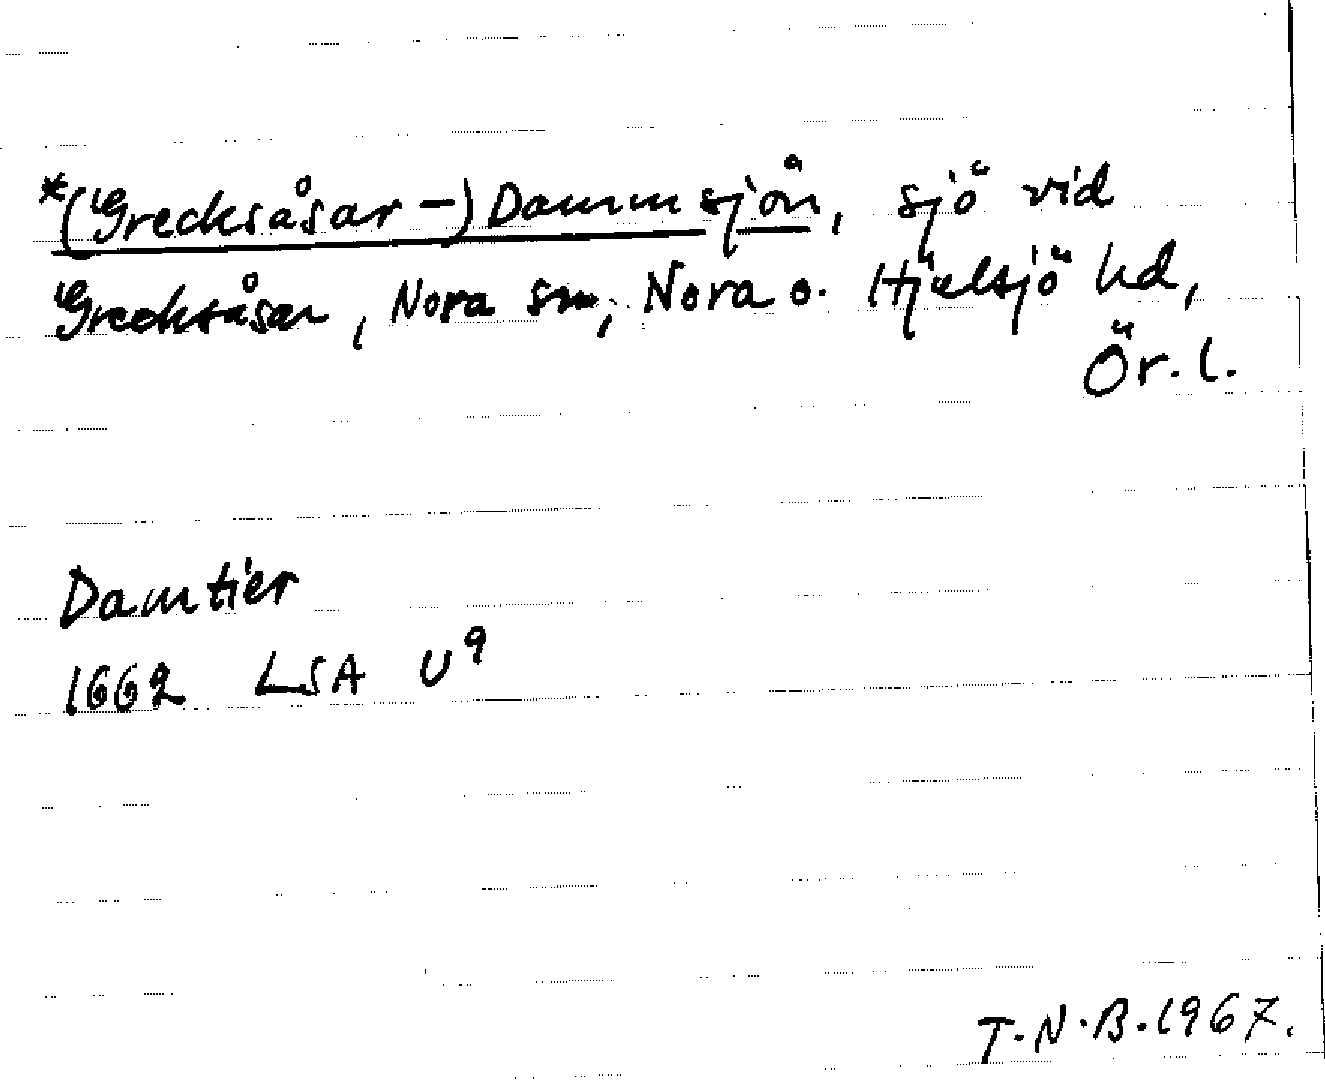 *(Grecksåsar-)Dammsjön, sjö vid
Grecksåsar, Nora sn, Nora o. Hjulsjö hd,
Ör. l.
Damtier
1662 LSA U9
T.N.B. 1967.